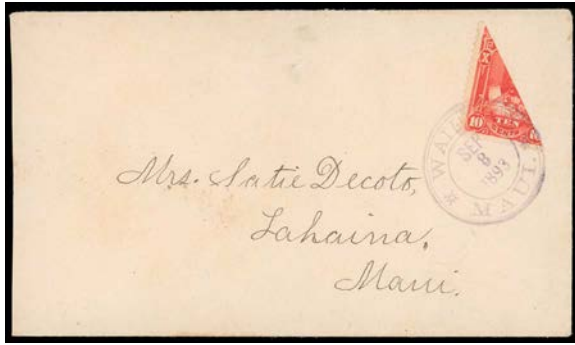 10
TEN
CENTS
SEP
8
1893
MAUI.
Mrs. Satie Decoto,
Lahaina,
Maui.